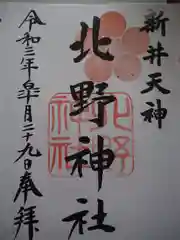 新井天神
北野神社
令和三年皐月二十九日奉拝
北野神社